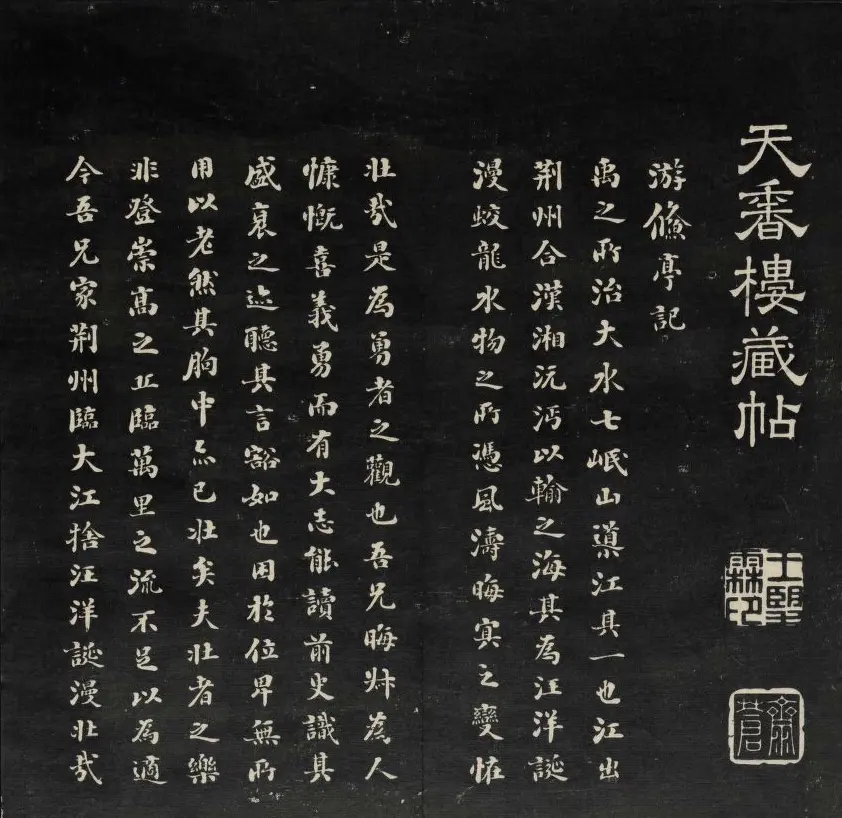 天香樓藏帖
王望霖印
游鯈亭記
禹之所治大水七岷山導江其一也江出
荆州合漢湘沅沔以輸之海其為汪洋誕
漫蛟龍水物之所憑風濤晦冥之變怪
壯哉是為勇者之觀也吾兄晦叔為人
慷慨喜義勇而有大志能讀前史識其
盛衰之迹聽其言豁如也困於位卑無所
用以老然其胸中亦已壯矣夫壯者之樂
非登崇高之丘臨萬里之流不足以為適
今吾兄家荆州臨大江捨汪洋誕漫壯哉